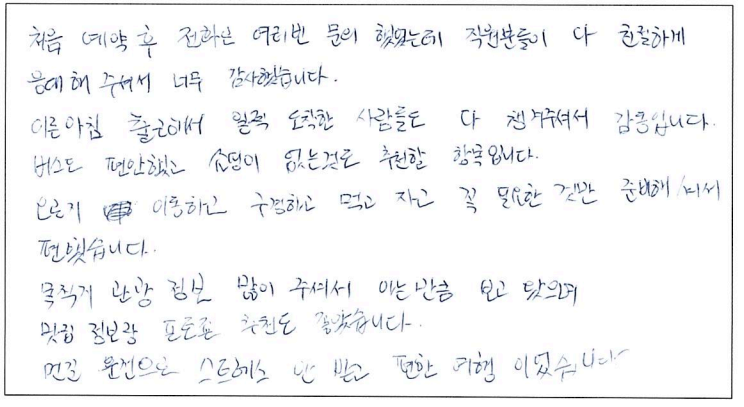 처음 예약 후 전화로 여러번 문의 했었는데 직원분들이 다 친절하게
응대해 주셔서 너무 감사했습니다.
이른아침 출근해서 일찍 도착한 사람들도 다 챙겨주셔서 감동입니다.
버스도 편안했고 쇼핑이 없는것도 추천할 항목입니다.
오르기 이동하고 구경하고 먹고 자고 꼭 필요한 것만 준비해주셔서
편했습니다.
관광 정보 많이 주셔서 아는만큼 보고 왔으며
맛집 정보랑 포토존 추천도 좋았습니다.
먼길 운전으로 스트레스 안 받고 편한 여행 이었습니다